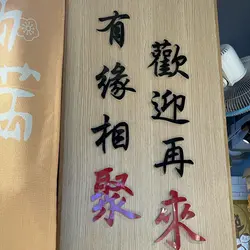 歡迎再來
有緣相聚
滿